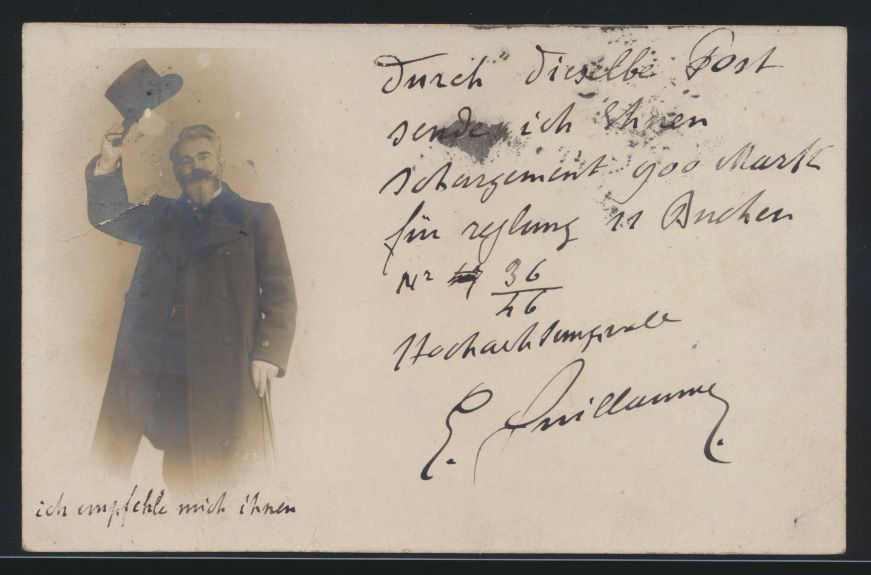 Durch dieselbe Post
sende ich Ihnen
schargement 900 Mark
für reglung 11 Buchen
Nr 36
46
Hochachtungsvoll
E. Guillaume.
ich empfehle mich ihnen